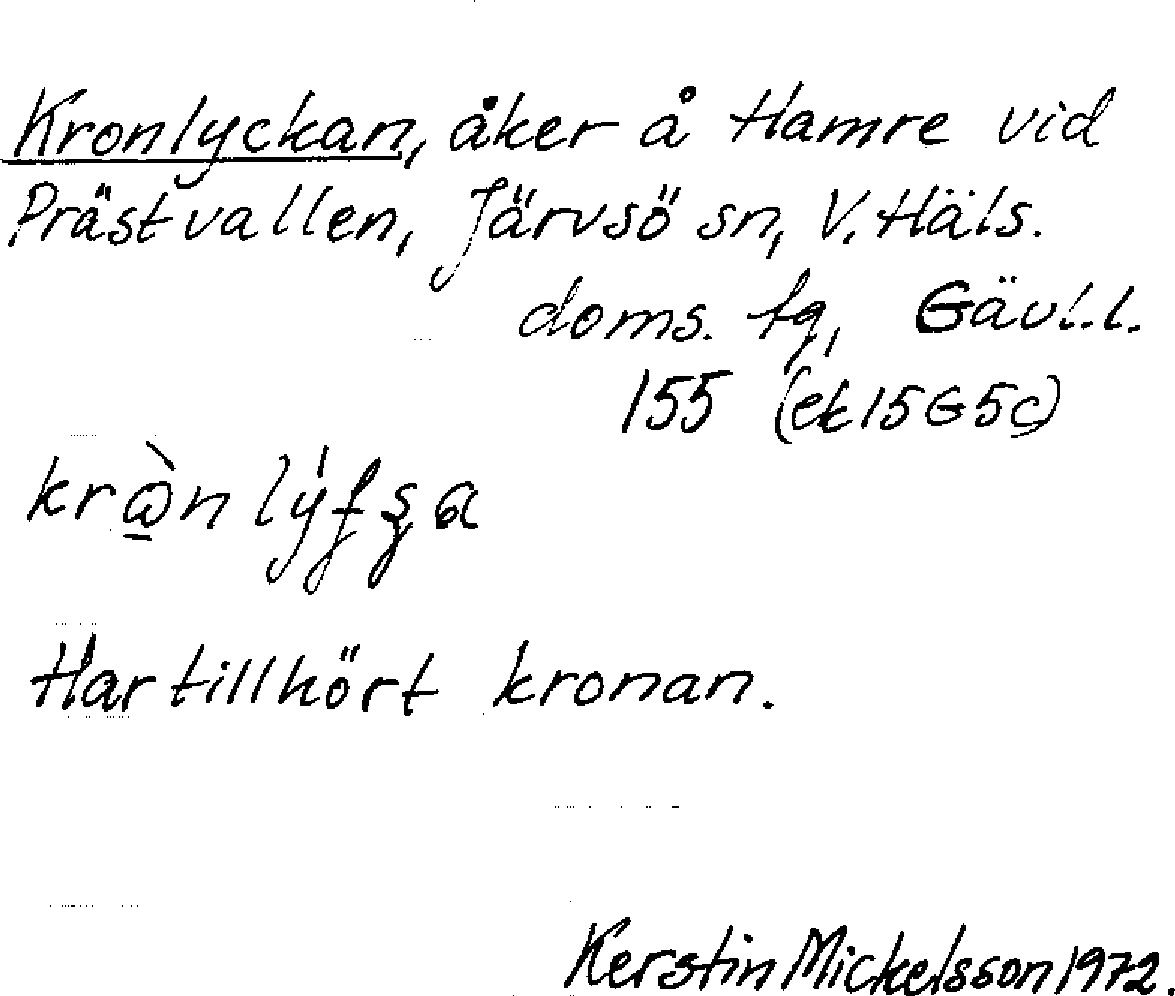 Kronlyckan, åker å Hamre vid
Prästvallen, Järvsö sn, V. Häls.
doms. tg, Gävl.l.
155 (ek 15G5c)
Har tillhört kronan.
Kerstin Mickelsson 1972.